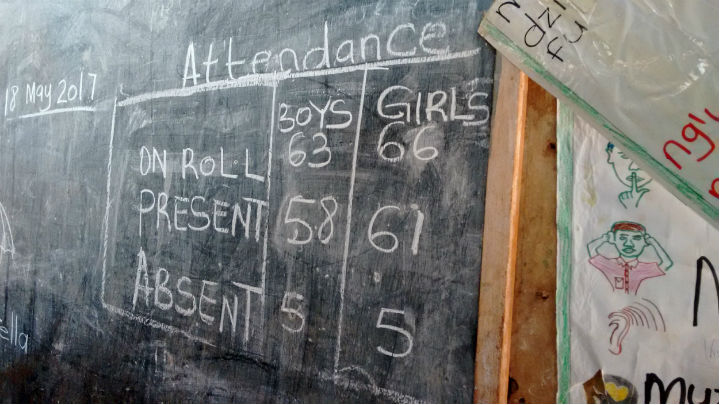 Attendance
18 May 2017
BOYS GIRLS
63 66
ON ROLL
PRESENT 58 61
ABSENT 5 5
ella
dzi
fu
ngu